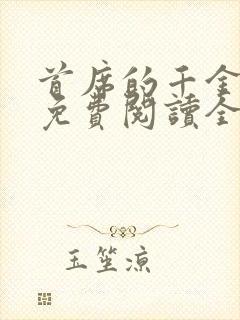 首席的千金
免費閱讀全
玉笙涼